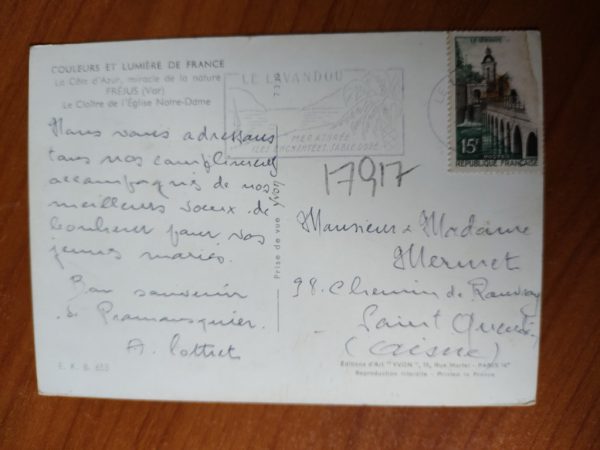 COULEURS ET LUMIÈRE DE FRANCE
La Côte d'Azur, miracle de la nature
FRÉJUS (Var)
Le Cloître de l'Église Notre-Dame
Nous vous adressons
tous nos compliments
accompagnés de nos
meilleurs vœux de
bonheur pour vos
jeunes mariés.
Bon souvenir
de Pramousquier.
A.
E. K. B. 653
Prise de vue Yvon
LE LAVANDOU
MER ATTISÉE
ILES ENCHANTÉES, SABLE DORÉ
LE QUIMPER
15F
POSTES
REPUBLIQUE FRANÇAISE
17917
Monsieur & Madame
Mermet
98. Chemin de
Saint Quentin
(Aisne)
Editions d'Art "YVON", 15, Rue Martel - PARIS 10e
Reproduction interdite - Printed in France